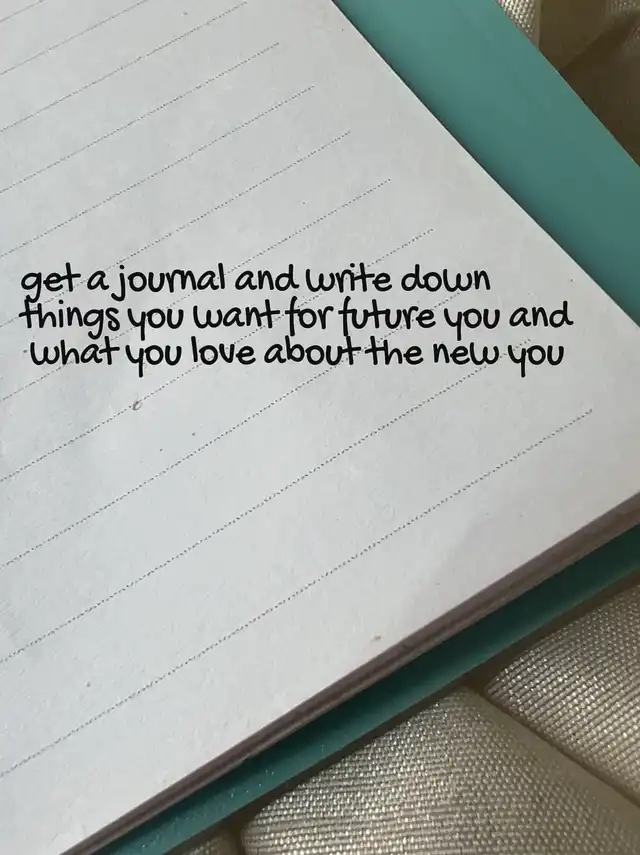 get a journal and write down
things you want for future you and
what you love about the new you